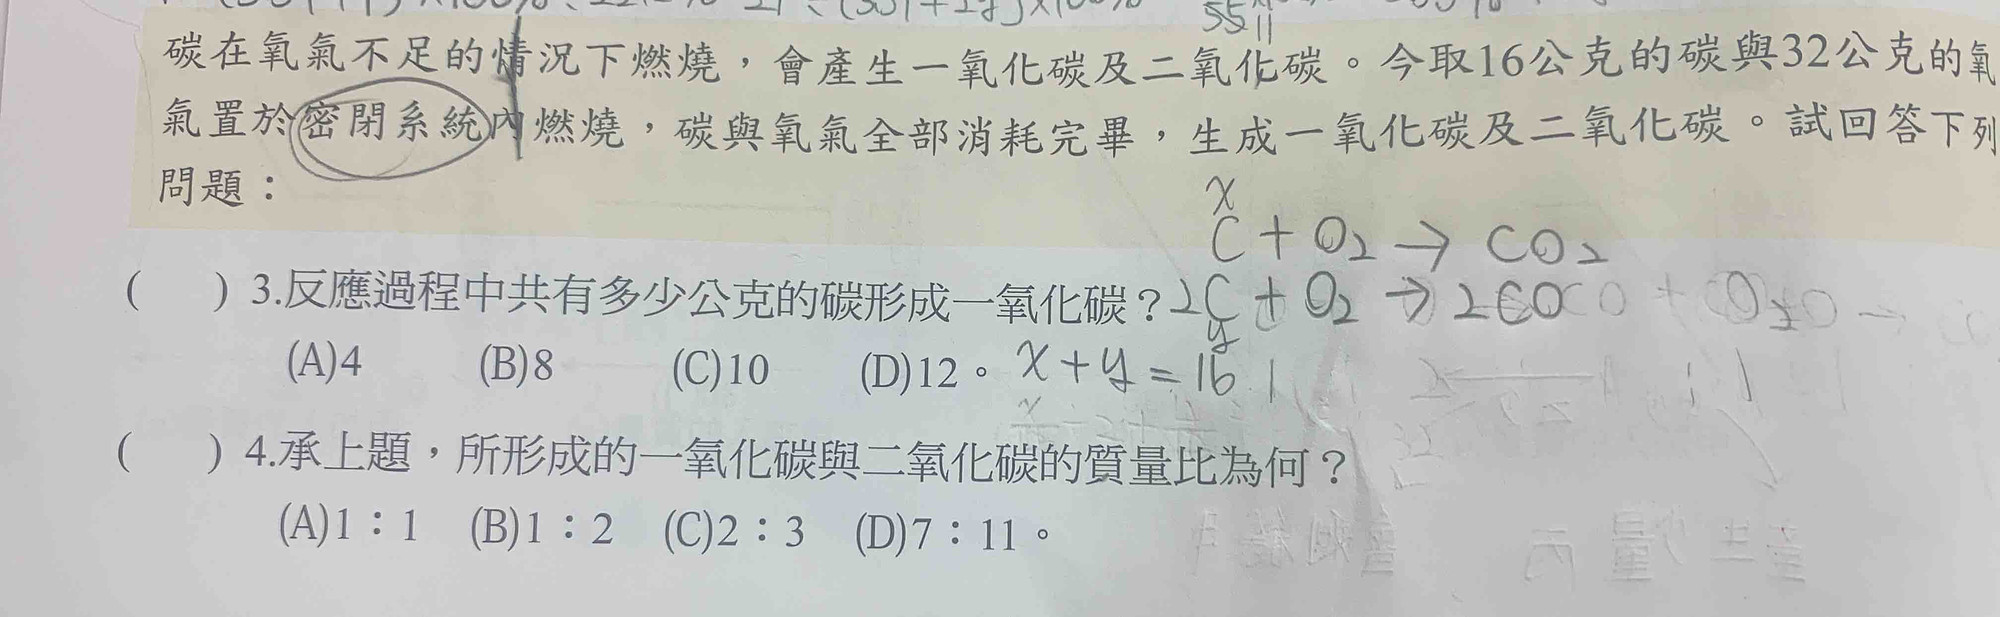 碳在氧氣不足的情況下燃燒，會產生一氧化碳及二氧化碳。今取16公克的碳與32公克的氧
氣置於密閉系統內燃燒，碳與氧氣全部消耗完畢，生成一氧化碳及二氧化碳。試回答下列
問題：
x
C + O₂ → CO₂
(　) 3.反應過程中共有多少公克的碳形成一氧化碳？2C + O₂ → 2CO
y
(A)4 (B)8 (C)10 (D)12。 x + y = 16
(　) 4.承上題，所形成的一氧化碳與二氧化碳的質量比為何？
(A)1：1 (B)1：2 (C)2：3 (D)7：11。